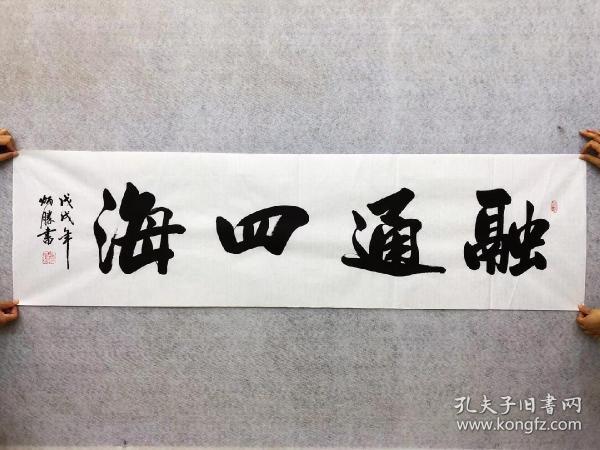 融通四海
戊戌年
炳勝書
孔夫子旧書网
www.kongfz.com